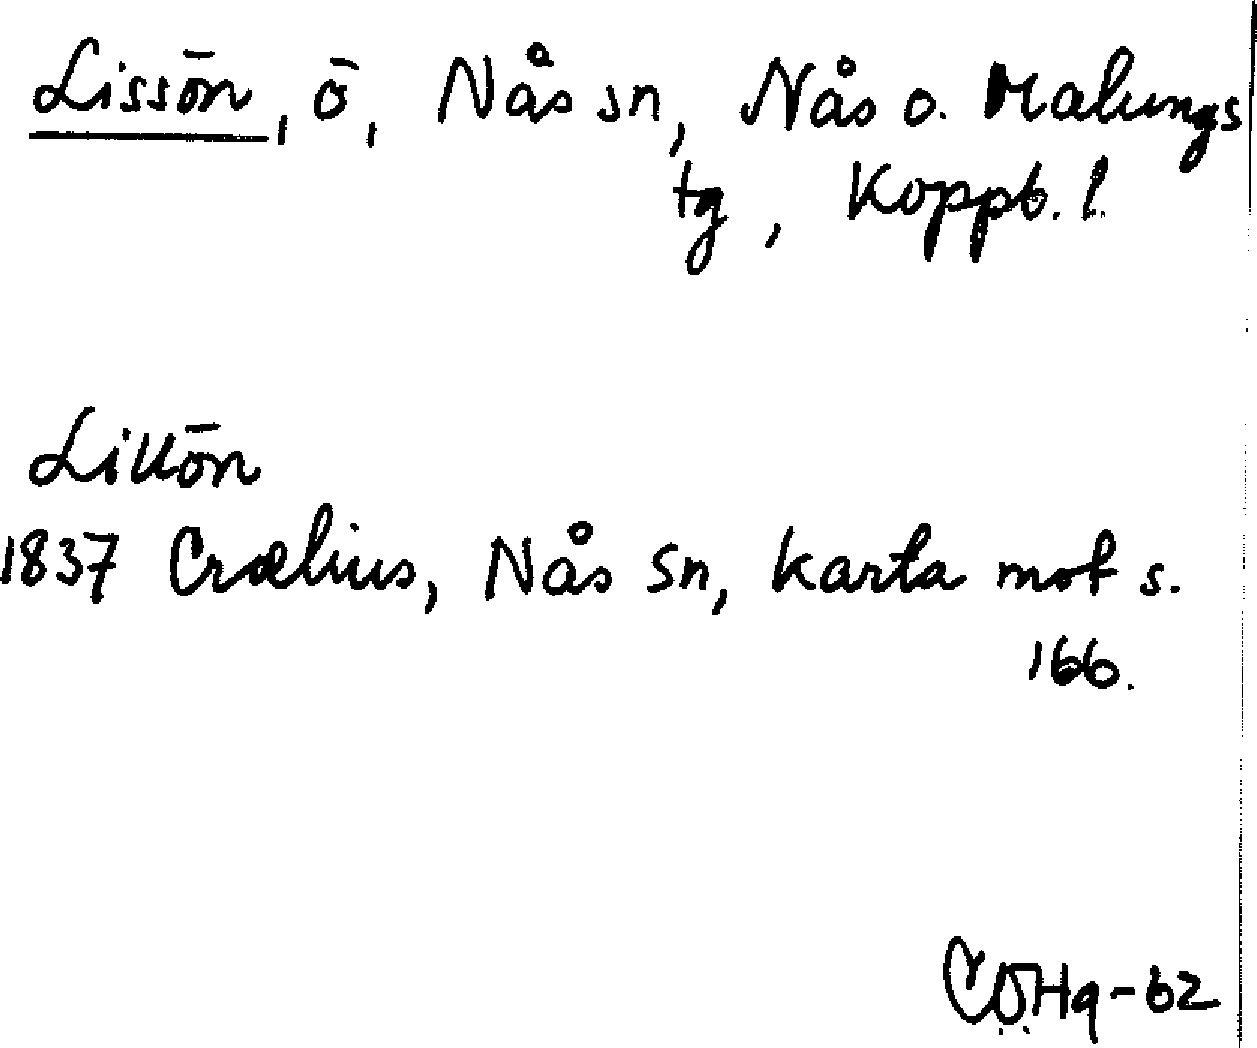 Lissön, ö, Nås sn, Nås o. Malungs
tg, Koppb. l.
Lillön
1837 Crælius, Nås sn, karta mot s.
166.